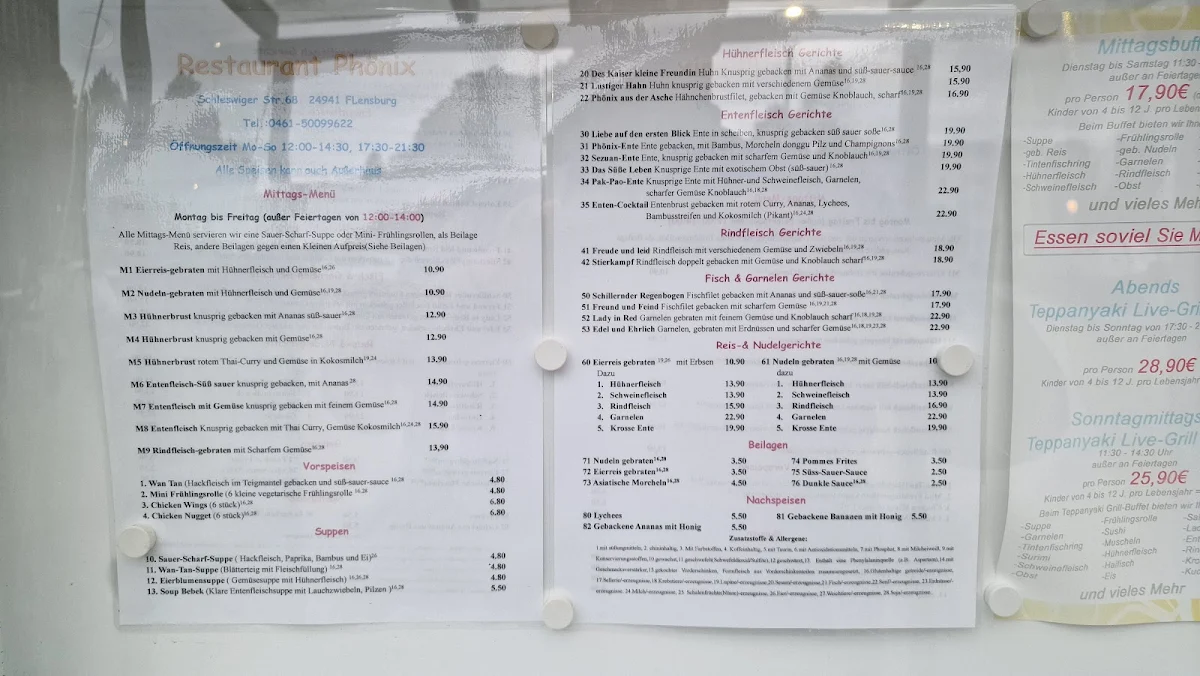 Restaurant Phönix
Schleswiger Str.68 24941 FLensburg
Tel :0461-50099622
Öffnungszeit Mo-So 12:00-14:30, 17:30-21:30
Alle Speisen kann auch Außerhaus
Mittags-Menü
Montag bis Freitag (außer Feiertagen von 12:00-14:00)
Alle Mittags-Menü servieren wir eine Sauer-Scharf-Suppe oder Mini- Frühlingsrollen, als Beilage
Reis, andere Beilagen gegen einen Kleinen Aufpreis(Siehe Beilagen)
M1 Eierreis-gebraten mit Hühnerfleisch und Gemüse 10.90
M2 Nudeln-gebraten mit Hühnerfleisch und Gemüse16,19,28 10.90
M3 Hühnerbrust knusprig gebacken mit Ananas süß-sauer16,28 12.90
M4 Hühnerbrust knusprig gebacken mit Gemüse16,28 12.90
M5 Hühnerbrust rotem Thai-Curry und Gemüse in Kokosmilch19,24 13,90
M6 Entenfleisch-Süß sauer knusprig gebacken, mit Ananas28 14.90
M7 Entenfleisch mit Gemüse knusprig gebacken mit feinem Gemüse16,28 14.90
M8 Entenfleisch Knusprig gebacken mit Thai Curry, Gemüse Kokosmilch16,24,28 15.90
M9 Rindfleisch-gebraten mit Scharfem Gemüse 13,90
Vorspeisen
1. Wan Tan (Hackfleisch im Teigmantel gebacken und süß-sauer-sauce 16,28 4.80
2. Mini Frühlingsrolle (6 kleine vegetarische Frühlingsrolle 16,28 4.80
3. Chicken Wings (6 stück)16,28 6.80
4. Chicken Nugget (6 stück)16,28 6.80
Suppen
10. Sauer-Scharf-Suppe ( Hackfleisch, Paprika, Bambus und Ei) 4,80
11. Wan-Tan-Suppe (Blätterteig mit Fleischfüllung) 16,28 4.80
12. Eierblumensuppe ( Gemüsesuppe mit Hühnerfleisch) 4.80
13. Soup Bebek (Klare Entenfleischsuppe mit Lauchzwiebeln, Pilzen )16,28 5.50
Hühnerfleisch Gerichte
20 Des Kaiser kleine Freundin Huhn Knusprig gebacken mit Ananas und süß-sauer-sauce 16,28 15,90
21 Lustiger Hahn Huhn knusprig gebacken mit verschiedenem Gemüse16,19,28 15.90
22 Phönix aus der Asche Hähnchenbrustfilet, gebacken mit Gemüse Knoblauch, scharf16,19,28 16,90
Entenfleisch Gerichte
30 Liebe auf den ersten Blick Ente in scheiben, knusprig gebacken süß sauer soße16,28 19.90
31 Phönix-Ente Ente gebacken, mit Bambus, Morcheln donggu Pilz und Champignons16,28 19.90
32 Sezuan-Ente Ente, knusprig gebacken mit scharfem Gemüse und Knoblauch16,19,28 19.90
33 Das Süße Leben Knusprige Ente mit exotischem Obst (süß-sauer)16,28 19.90
34 Pak-Pao-Ente Knusprige Ente mit Hühner-und Schweinefleisch, Garnelen,
scharfer Gemüse Knoblauch16,18,28 22.90
35 Enten-Cocktail Entenbrust gebacken mit rotem Curry, Ananas, Lychees,
Bambusstreifen und Kokosmilch (Pikant)16,24,28 22.90
Rindfleisch Gerichte
41 Freude und leid Rindfleisch mit verschiedenem Gemüse und Zwiebeln16,19,28 18.90
42 Stierkampf Rindfleisch doppelt gebacken mit Gemüse und Knoblauch scharf16,19,28 18.90
Fisch & Garnelen Gerichte
50 Schillernder Regenbogen Fischfilet gebacken mit Ananas und süß-sauer-soße16,21,28 17.90
51 Freund und Feind Fischfilet gebacken mit scharfem Gemüse 16,19,21,28 17.90
52 Lady in Red Garnelen gebraten mit feinem Gemüse und Knoblauch scharf16,18,19,28 22.90
53 Edel und Ehrlich Garnelen, gebraten mit Erdnüssen und scharfer Gemüse 22.90
Reis-& Nudelgerichte
60 Eierreis gebraten mit Erbsen 10.90 61 Nudeln gebraten 16,19,28 mit Gemüse 10
Dazu dazu
1. Hühnerfleisch 13.90 1. Hühnerfleisch 13.90
2. Schweinefleisch 13.90 2. Schweinefleisch 13.90
3. Rindfleisch 15.90 3. Rindfleisch 16.90
4. Garnelen 22.90 4. Garnelen 22.90
5. Krosse Ente 19.90 5. Krosse Ente 19,90
Beilagen
71 Nudeln gebraten16,28 3.50 74 Pommes Frites 3.50
72 Eierreis gebraten16,28 3.50 75 Süss-Sauer-Sauce 2.50
73 Asiatische Morcheln16,28 4.50 76 Dunkle Sauce16,28 2,50
Nachspeisen
80 Lychees 5.50 81 Gebackene Bananen mit Honig 5.50
82 Gebackene Ananas mit Honig 5.50
Zusatzstoffe & Allergene:
Mittagsbuf
Dienstag bis Samstag 11:30-
außer an Feiertagen
pro Person 17,90€
Kinder von 4 bis 12 J. pro Leben
Beim Buffet bieten wir Ihn
-Suppe -Frühlingsrolle
-geb. Reis -geb. Nudeln
-Tintenfischring -Garnelen
-Hühnerfleisch -Rindfleisch
-Schweinefleisch -Obst
und vieles Meh
Essen soviel Sie M
Abends
Teppanyaki Live-Gril
Dienstag bis Sonntag von 17:30 - 2
außer an Feiertagen
pro Person 28,90€
Kinder von 4 bis 12 J. pro Lebensjahr
Sonntagmittags
Teppanyaki Live-Grill
11:30 - 14:30 Uhr
außer an Feiertagen
pro Person 25,90€
Kinder von 4 bis 12 J. pro Lebensjahr =
Beim Teppanyaki Grill-Buffet bieten wir I
-Suppe -Frühlingsrolle -Sa
-Garnelen -Sushi -Lac
-Tintenfischring -Muscheln -Ent
-Surimi -Hühnerfleisch -Rin
-Schweinefleisch -Haifisch -Kro
-Obst -Eis -Ko
und vieles Mehr